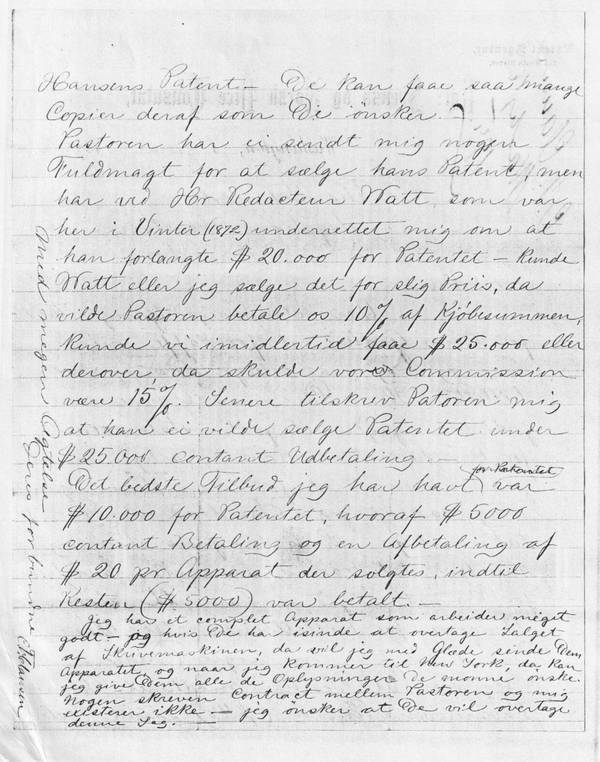 Hansens Patent — De kan faae saa mange
Copier deraf som De ønsker. —
Pastoren har ei sendt mig nogen
Fuldmagt for at sælge hans Patent, men
har ved Hr Redacteur Watt som var
her i Vinter (1872) underrettet mig om at
han forlangte $ 20.000 for Patentet — kunde
Watt eller jeg sælge det for slig Priis, da
vilde Pastoren betale os 10% af Kjöbesummen,
kunde vi imidlertid faae $ 25.000 eller
derover da skulde vores Commission
være 15%. Senere tilskrev Patoren mig
at han ei vilde sælge Patentet under
$ 25.000 contant Udbetaling. —
for Patentet
Det bedste Tilbud jeg har havt var
$ 10.000 for Patentet, hvoraf $ 5000
contant Betaling og en Afbetaling af
$ 20 pr Apparat der solgtes, indtil
Resten ($ 5000) var betalt. —
Jeg har et complet Apparat som arbeider meget
godt — og hvis De har isinde at overtage Salget
af Skrivemaskinen, da vil jeg med Glæde sende Dem
Apparatet, og naar jeg kommer til New York, da kan
jeg give Dem alle de Oplysninger De monne önske.
Nogen skreven Contract mellem Pastoren og mig
existerer ikke — jeg ønsker at De vil overtage
denne Sag. —
Med megen Agtelse
Deres forbundne